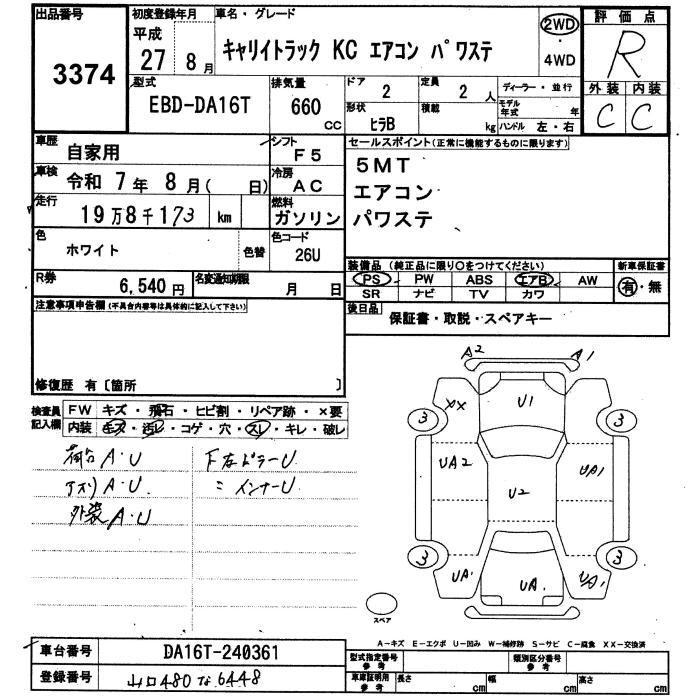 出品番号
3374
初度登録年月
平成
27年 8月
車名・グレード
キャリイトラック KC エアコン パワステ
2WD
・
4WD
評価点
R
外装 内装
C C
型式
EBD-DA16T
排気量
660
CC
ドア
2
定員
2人
形状
ヒラB
積載
kg
ディーラー・並行
モデル年式 年
ハンドル 左・右
車歴
自家用
シフト
F5
車検
令和 7年 8月( 日)
冷房
AC
走行
19万8千173 km
燃料
ガソリン
色
ホワイト
色替
色コード
26U
R券
6,540円
名変通知期限
月 日
セールスポイント(正常に機能するものに限ります)
5MT
エアコン
パワステ
装備品(純正品に限り○をつけてください)
新車保証書
PS PW ABS エアB AW
SR ナビ TV カワ
有・無
後日品
保証書・取説・スペアキー
注意事項申告欄(不具合内容等は具体的に記入して下さい)
修復歴 有〔箇所 〕
検査員記入欄
FW キズ・飛石・ヒビ割・リペア跡・×要
内装 キズ・汚レ・コゲ・穴・スレ・キレ・破レ
荷台 A・U
アオリ A・U
外装 A・U
F左ピラーU
〃 インナーU
A2
A1
U1
XX
3
3
UA2
U2
UA1
3
3
UA1
UA1
UA1
スペア
A-キズ E-エクボ U-凹み W-補修跡 S-サビ C-腐食 XX-交換済
車台番号
DA16T-240361
登録番号
山口480な6448
型式指定番号
参考
類別区分番号
参考
車庫証明用
参考
長さ cm
幅 cm
高さ cm